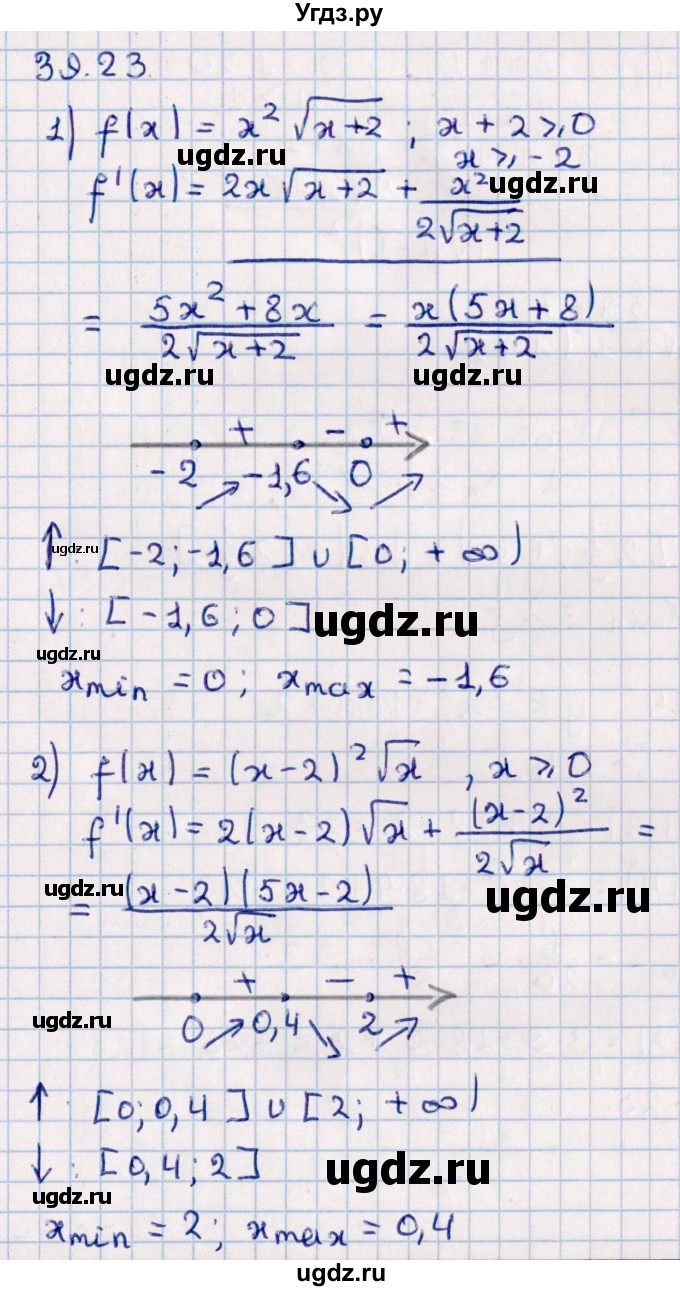 Угдз.ру
39.23.
1) f(x) = x² √(x+2) ; x + 2 ⩾ 0
ugdz.ru x ⩾ -2
f'(x) = 2x √(x+2) + x²/(2√(x+2)) ugdz.ru
= (5x² + 8x)/(2√(x+2)) = x(5x+8)/(2√(x+2))
ugdz.ru ugdz.ru
+ - +
-2 -1,6 0
↗ ↘ ↗
↑: [-2; -1,6] ∪ [0; +∞)
ugdz.ru
↓: [-1,6; 0] ugdz.ru
ugdz.ru
x min = 0; x max = -1,6
2) f(x) = (x-2)² √x , x ⩾ 0
f'(x) = 2(x-2)√x + (x-2)²/(2√x) =
ugdz.ru ugdz.ru
= (x-2)(5x-2)/(2√x)
+ - +
ugdz.ru
0 ↗ 0,4 ↘ 2 ↗
↑: [0; 0,4] ∪ [2; +∞)
↓: [0,4; 2] ugdz.ru
ugdz.ru
x min = 2; x max = 0,4
ugdz.ru